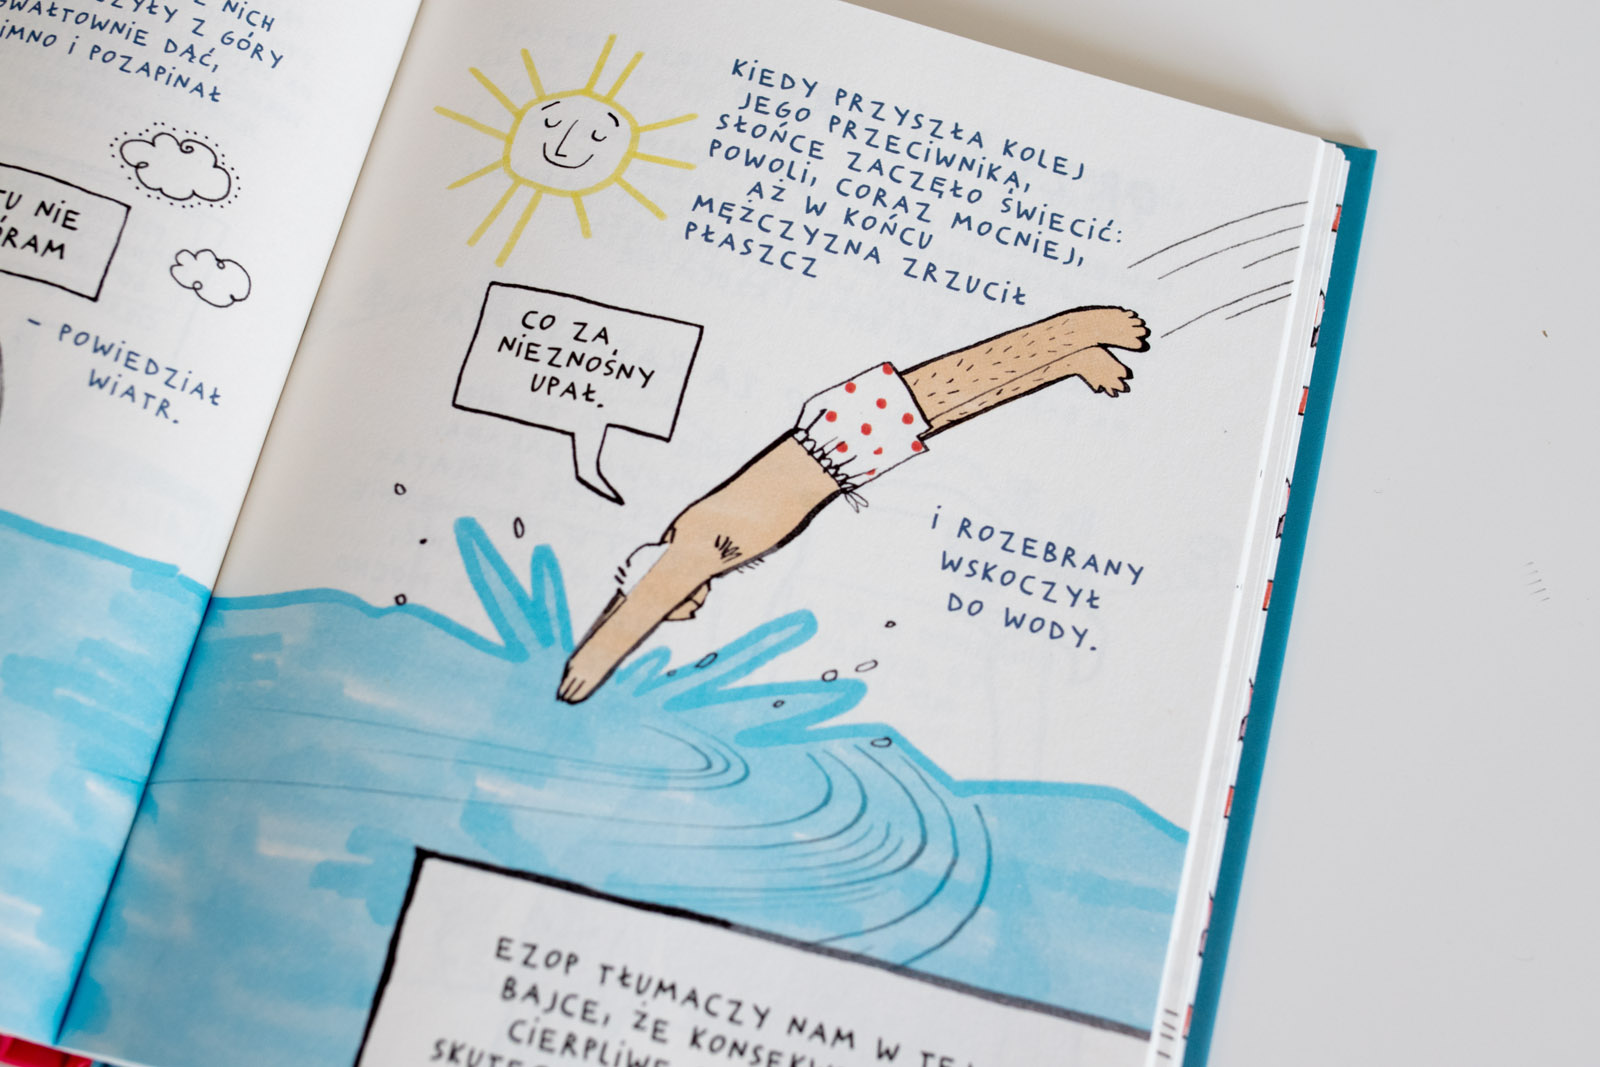 Z NICH
Z GÓRY
GWAŁTOWNIE DĄĆ,
I POZAPINAŁ
TU NIE
– POWIEDZIAŁ
WIATR.
KIEDY PRZYSZŁA KOLEJ
JEGO PRZECIWNIKA,
SŁOŃCE ZACZĘŁO ŚWIECIĆ:
POWOLI, CORAZ MOCNIEJ,
AŻ W KOŃCU
MĘŻCZYZNA ZRZUCIŁ
PŁASZCZ
CO ZA
NIEZNOŚNY
UPAŁ.
I ROZEBRANY
WSKOCZYŁ
DO WODY.
EZOP TŁUMACZY NAM W TEJ
BAJCE, ŻE